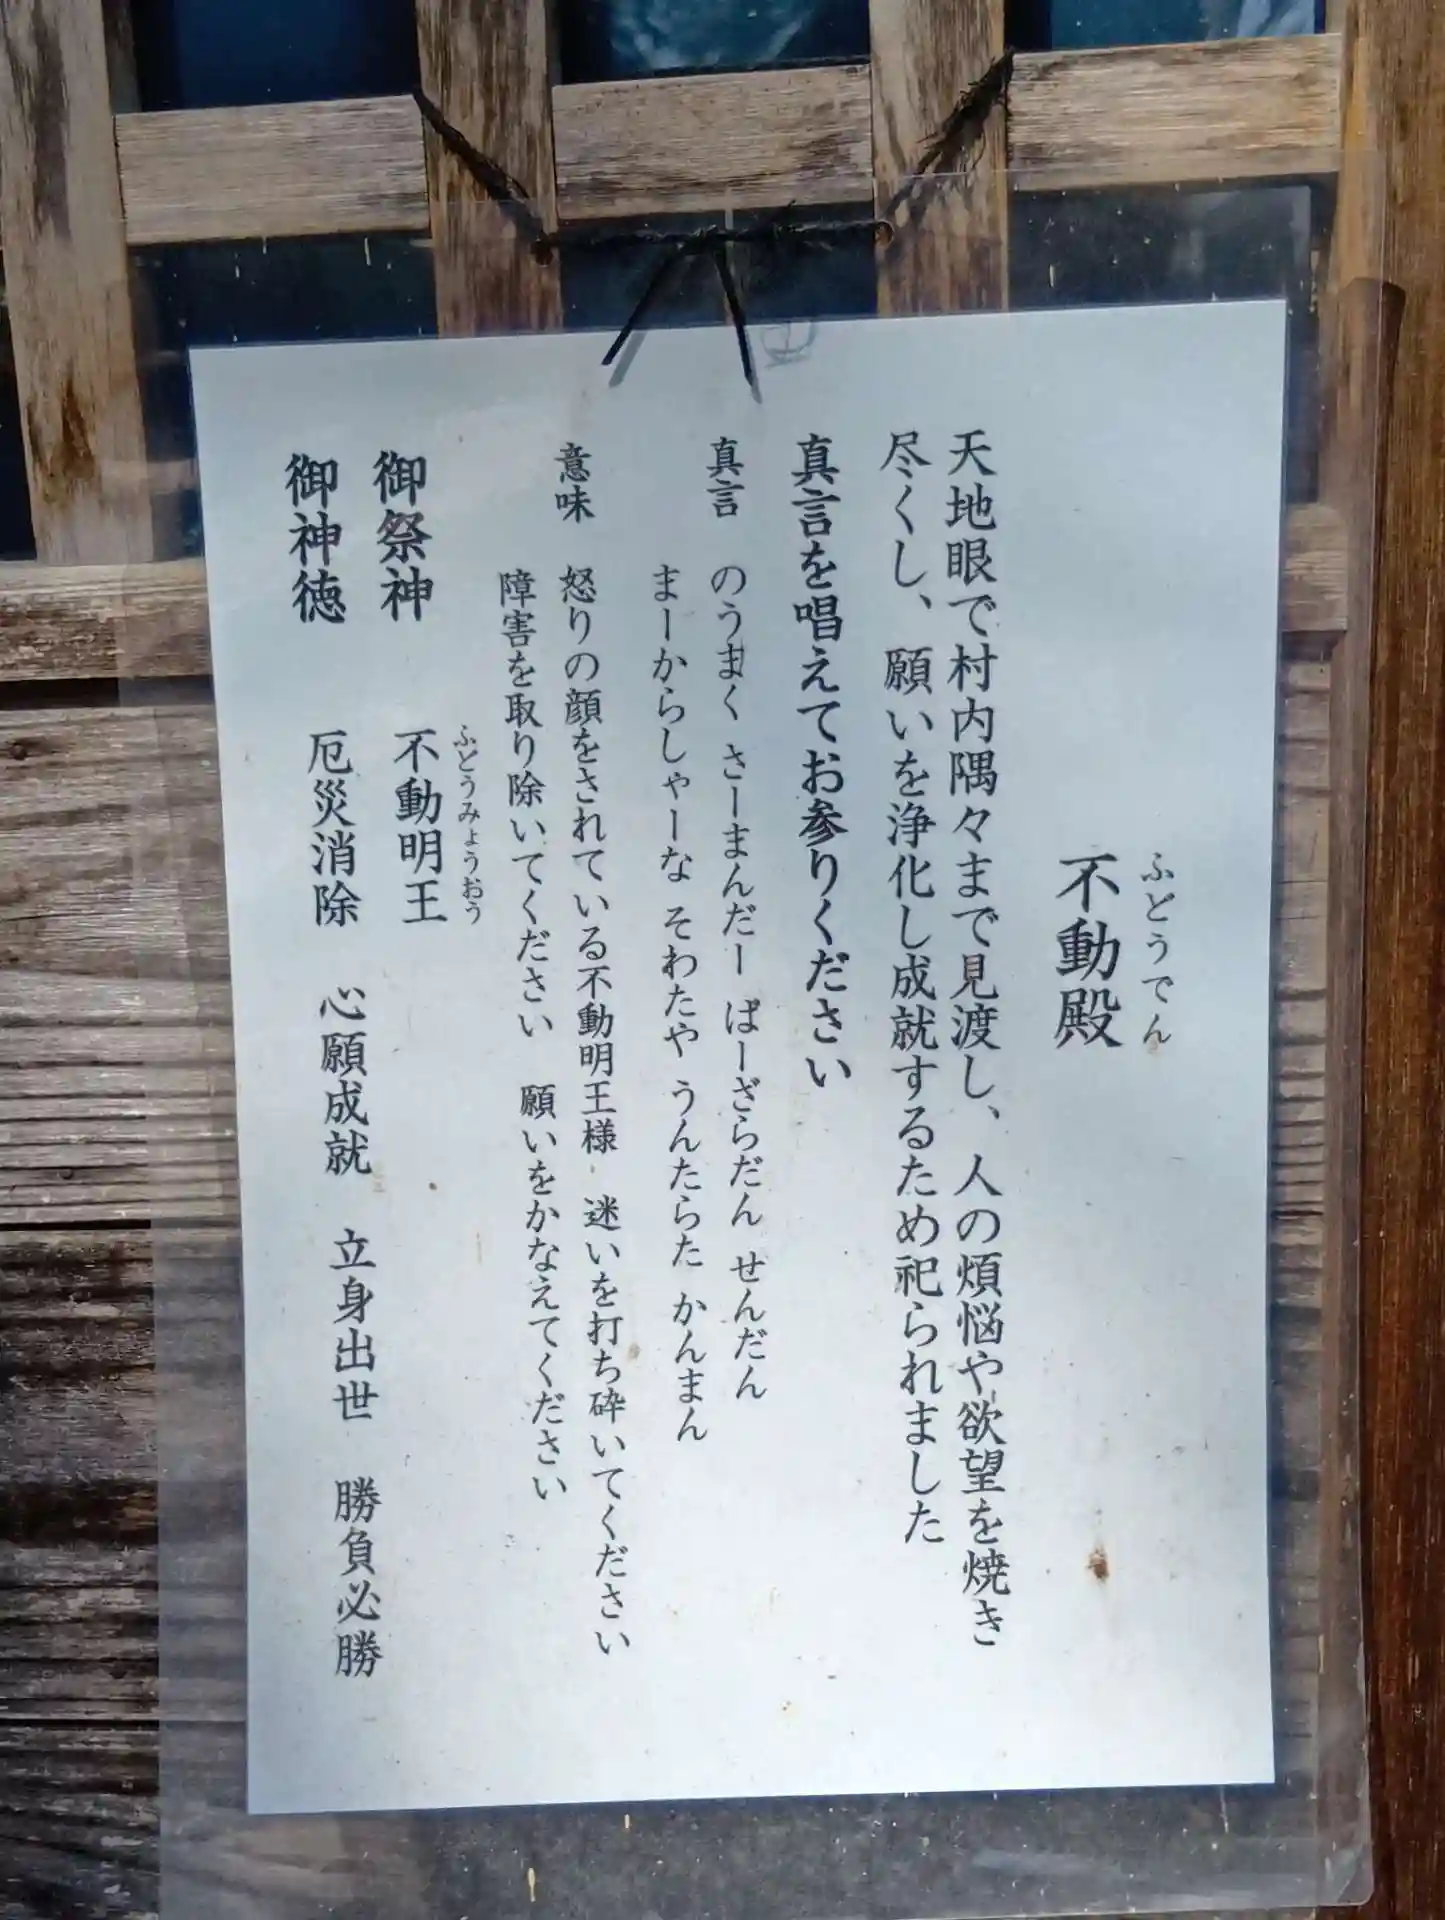 ふどうでん
不動殿
天地眼で村内隅々まで見渡し、人の煩悩や欲望を焼き
尽くし、願いを浄化し成就するため祀られました
真言を唱えてお参りください
真言 のうまく さーまんだー ばーざらだん せんだん
まーからしゃーな そわたや うんたらた かんまん
意味 怒りの顔をされている不動明王様 迷いを打ち砕いてください
障害を取り除いてください 願いをかなえてください
ふどうみょうおう
御祭神 不動明王
御神徳 厄災消除 心願成就 立身出世 勝負必勝